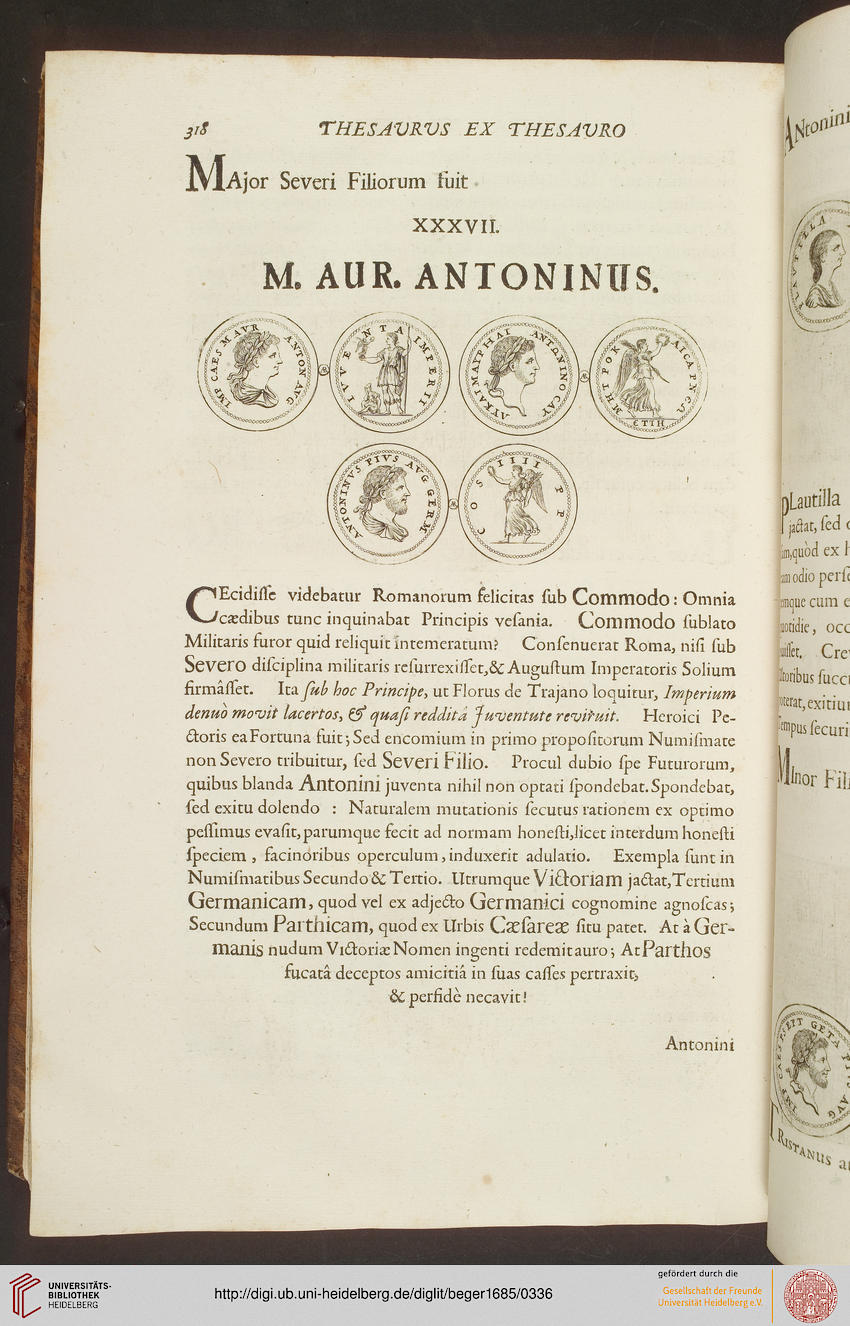 318 THESAVRVS EX THESAVRO
MAjor Severi Filiorum fuit
XXXVII.
M. AUR. ANTONINUS.
IMP CAES M AVR ANTON AVG
IVVENTA IMPERII
ΑΥ ΚΑΙ Μ ΑΥΡΗΛΙ ΑΝΤΩΝΙΝΟC ΑΥ
ΜΗΤΡΟΚ ΑΙCΑΡ
ЄΤΙΗ
ANTONINVS PIVS AVG GERM
COS IIII P P
CEcidiſſe videbatur Romanorum felicitas ſub Commodo: Omnia
cædibus tunc inquinabat Principis veſania. Commodo ſublato
Militaris furor quid reliquit intemeratum? Conſenuerat Roma, niſi ſub
Severo diſciplina militaris reſurrexiſſet,& Auguſtum Imperatoris Solium
firmâſſet. Ita ſub hoc Principe, ut Florus de Trajano loquitur, Imperium
denuò movit lacertos, & quaſi redditâ Juventute reviruit. Heroici Pe-
ctoris ea Fortuna fuit; Sed encomium in primo propoſitorum Numiſmate
non Severo tribuitur, ſed Severi Filio. Procul dubio ſpe Futurorum,
quibus blanda Antonini juventa nihil non optati ſpondebat. Spondebat,
ſed exitu dolendo : Naturalem mutationis ſecutus rationem ex optimo
peſſimus evaſit, parumque fecit ad normam honeſti, licet interdum honeſti
ſpeciem , facinoribus operculum, induxerit adulatio. Exempla ſunt in
Numiſmatibus Secundo & Tertio. Utrumque Victoriam jactat, Tertium
Germanicam, quod vel ex adjecto Germanici cognomine agnoſcas;
Secundum Parthicam, quod ex Urbis Cæſareæ ſitu patet. At à Ger-
manis nudum Victoriæ Nomen ingenti redemit auro; At Parthos
fucatâ deceptos amicitiâ in ſuas caſſes pertraxit,
& perfidè necavit!
Antonini
ANtonini
PLAVTILLA
PLautilla
jactat, ſed
quòd ex
odio
cum
occ
Cre
exitiu
ſecuri
MInor Fil
GETA
TRISTANUS
UNIVERSITÄTS-
BIBLIOTHEK
HEIDELBERG
http://digi.ub.uni-heidelberg.de/diglit/beger1685/0336
gefördert durch die
Gesellschaft der Freunde
Universität Heidelberg e.V.